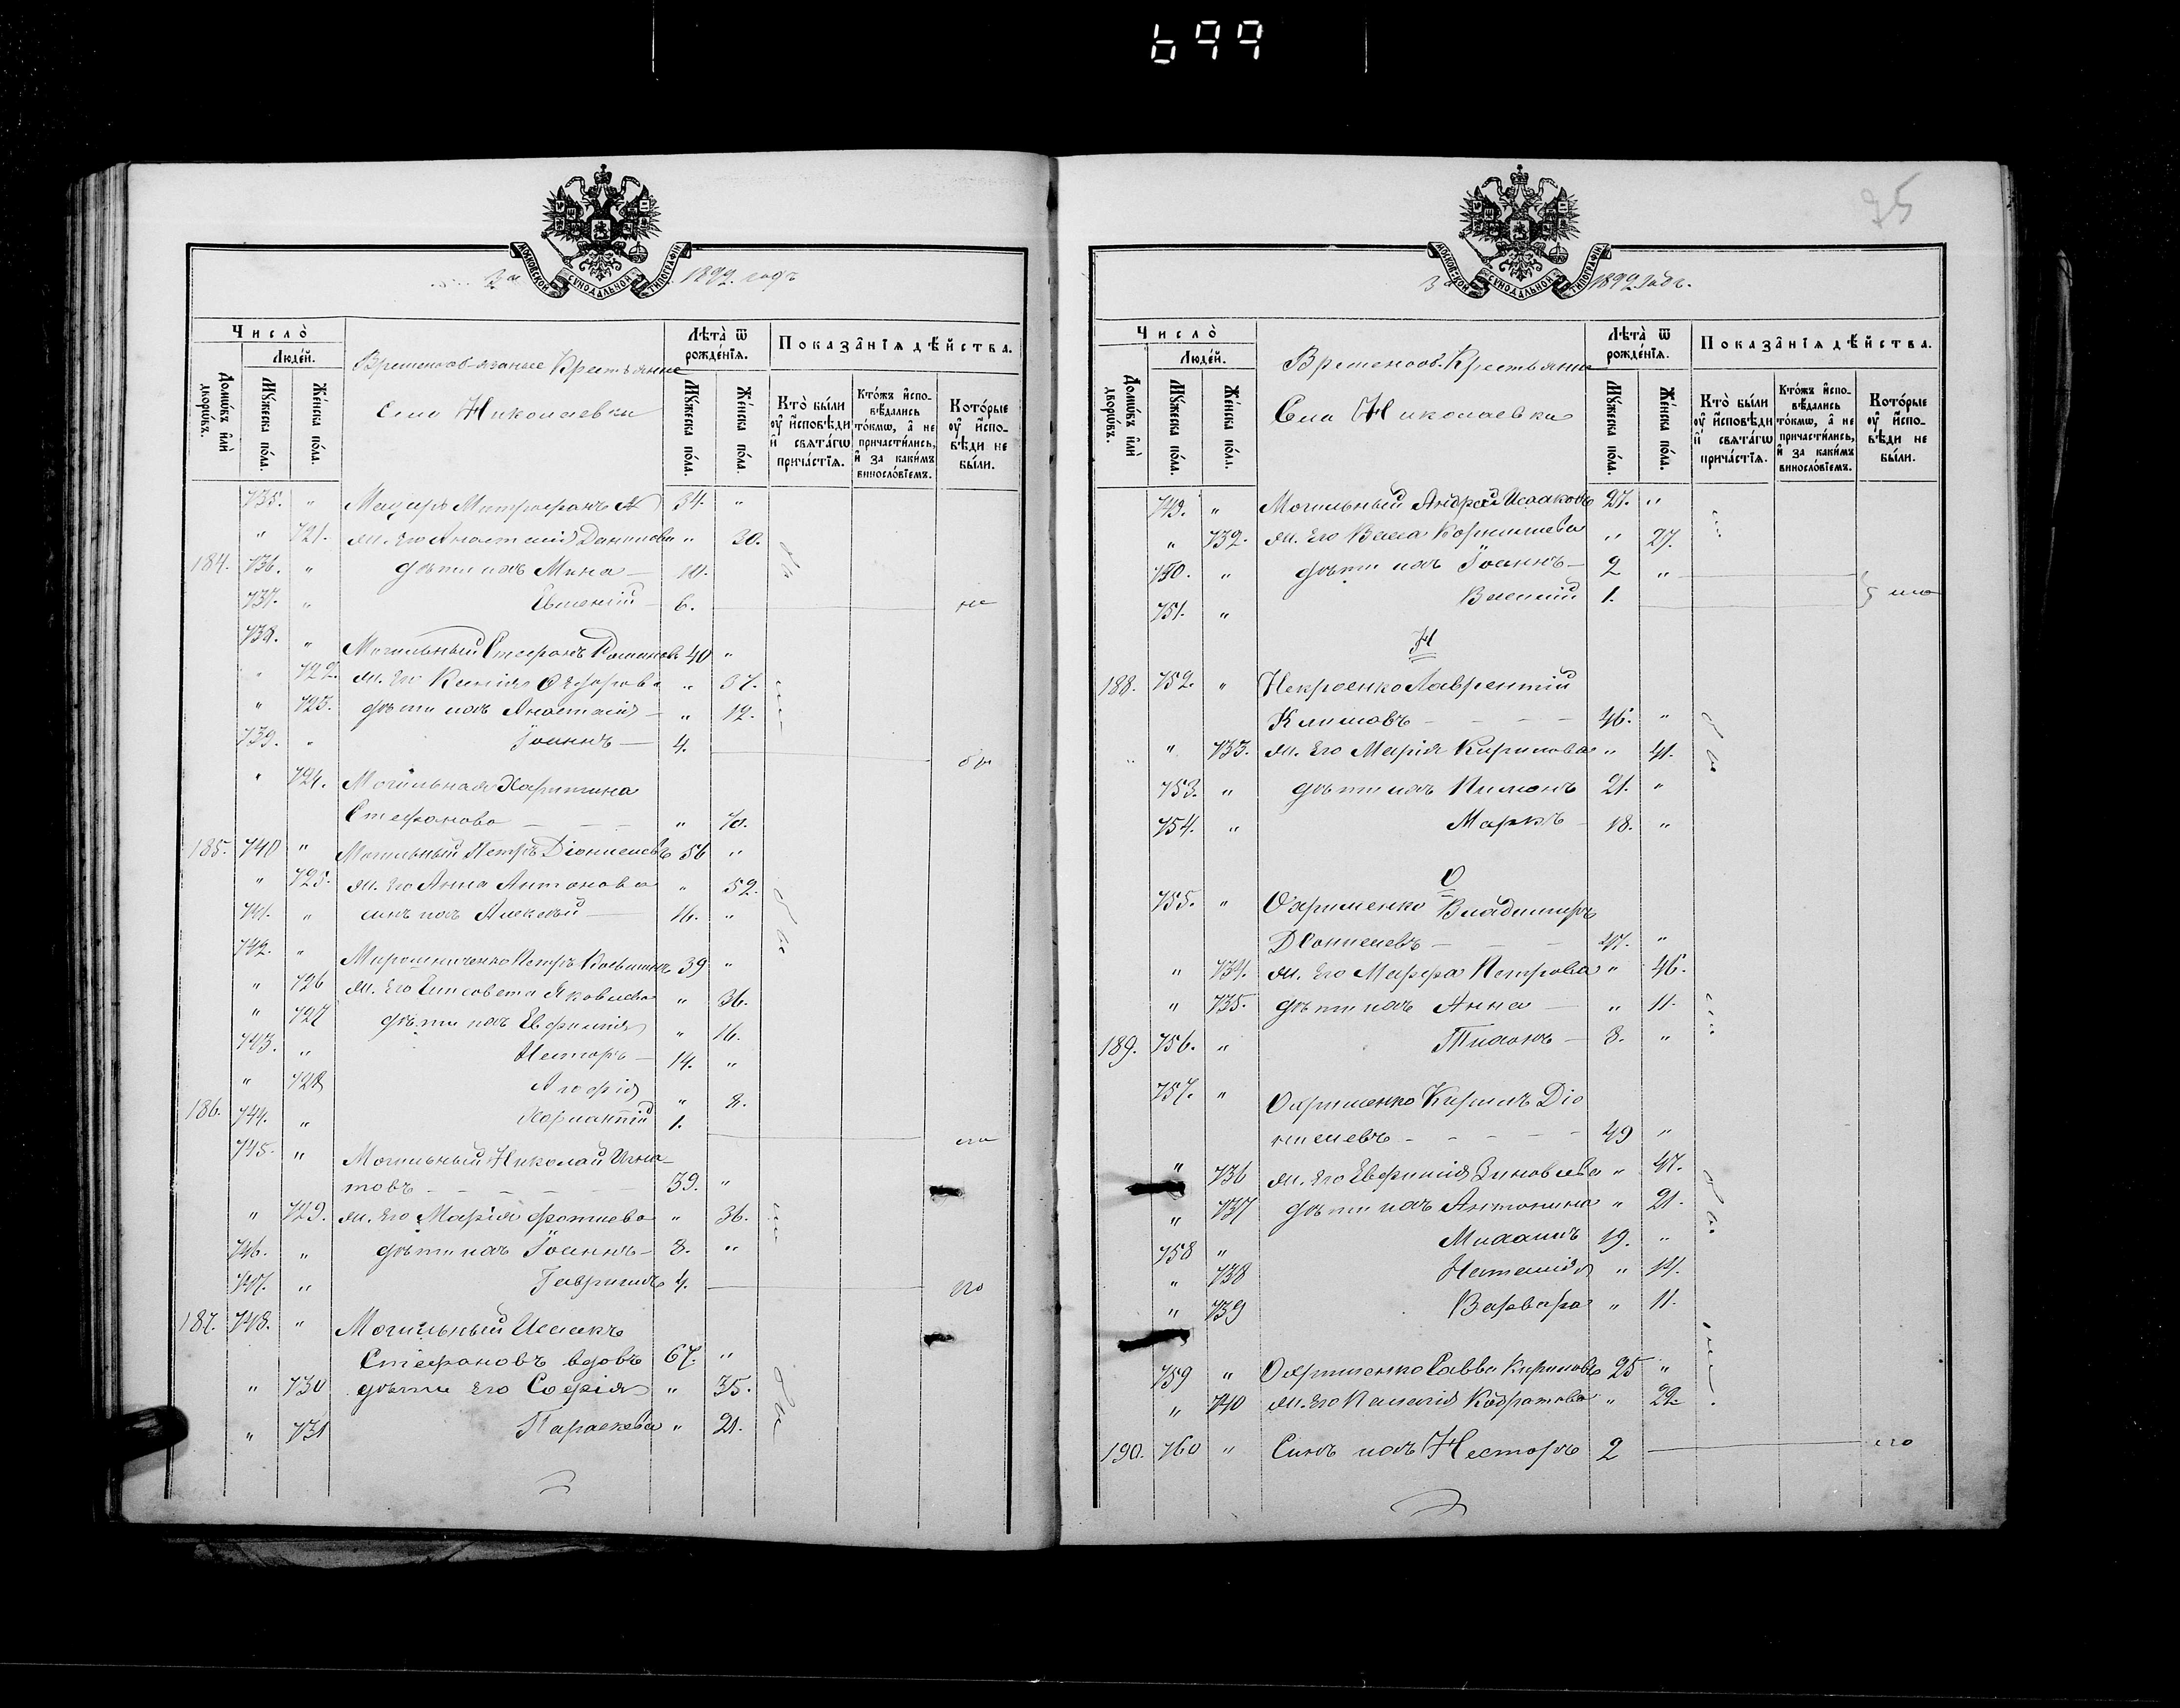 699
МОСКОВСКОЙ СѴНОДАЛЬНОЙ ТИПОГРАФІИ
За 1892. годъ
Число̀
Людéй.
Домѡ́въ и҆лѝ дворѡ́въ.
Мꙋ́жеска по́ла.
Же́нска по́ла.
Временнооб-язаные Крестьяне
Села Николаевки
Лѣта̀ ѿ рожде́нїѧ.
Мꙋ́жеска по́ла.
Же́нска по́ла.
Показа̂нїѧ дѣ́йства.
Кто̀ бы́ли оу҆ и҆сповѣди и҆ свѧта́гѡ прича́стїѧ.
Кто́жъ и҆спо-вѣдались то́кмѡ, а҆ не причасти́лись, и҆ за каки́мъ винослóвїемъ.
Кото́рые оу҆ и҆спо-вѣди не бы́ли.
735. " Мацаръ Митрофанъ 34. "
" 721. ж. его Анастасія Данилова " 30.
184. 736. " дѣти ихъ Мина — 10.
737. " Евгеній — 6.
738. " Могильный Стефанъ Романовъ 40 "
" 722. ж. его Ксенія Ѳедорова " 37.
" 723. дѣти ихъ Анастасія — " 12.
739. " Іоаннъ — 4.
" 724. Могильная Харитина
Стефанова — — — " 70.
185. 740 " Могильный Петръ Діонисіевъ 56 "
" 725. ж. его Анна Антонова " 52.
741. " сынъ ихъ Алексѣй — 16. "
742. " Мирошниченко Петръ 39 "
" 726 ж. его Елисавета Яковлева " 36.
" 727 дѣти ихъ Евфимія " 16.
743. " Несторъ — 14. "
" 728 Агафія " 8.
186. 744. " 1.
745. " Могильный Николай Игна-
товъ — — — 39. "
" 729. ж. его Марія Фотиева " 36.
746. " дѣти ихъ Іоаннъ — 8. "
747. " Гавріилъ 4.
187. 748. " Могильный Исаакъ
Стефановъ вдовъ 67. "
" 730 дѣти его Софія " 35.
" 731 Параскева " 21.
95
МОСКОВСКОЙ СѴНОДАЛЬНОЙ ТИПОГРАФІИ
За 1892 годъ.
Число̀
Людéй.
Домѡ́въ и҆лѝ дворѡ́въ.
Мꙋ́жеска по́ла.
Же́нска по́ла.
Временнооб. Крестьяне
Села Николаевка
Лѣта̀ ѿ рожде́нїѧ.
Мꙋ́жеска по́ла.
Же́нска по́ла.
Показа̂нїѧ дѣ́йства.
Кто̀ бы́ли оу҆ и҆сповѣди и҆ свѧта́гѡ прича́стїѧ.
Кто́жъ и҆спо-вѣдались то́кмѡ, а҆ не причасти́лись, и҆ за каки́мъ винослóвїемъ.
Кото́рые оу҆ и҆спо-вѣди не бы́ли.
749. " Могильный Андрей Исааковъ 27. "
" 732. ж. его Васса Корнилиева " 27.
750. " дѣти ихъ Іоаннъ — 2 "
751. " Василій 1.
Н
188. 752. " Некроенко Лаврентій
Климовъ — — — — 46. "
" 733. ж. его Марія Кирилова " 41.
753. " дѣти ихъ Пименъ 21. "
754. " Маркъ — 18. "
О
755. " Охрименко Владимиръ
Діонисіевъ — — — 47. "
" 734. ж. его Марфа Петрова " 46.
" 735. дѣти ихъ Анна — " 11.
189. 756. " Тихонъ — 8. "
757. " Охрименко Кирилъ Діо
нисіевъ — — — — — 49 "
" 736 ж. его Евфимія Зиновіева " 47.
" 737 дѣти ихъ Антонина " 21.
758 " Михаилъ 19. "
" 738 Наталія " 14.
" 739 Варвара " 11.
759 " Охрименко Савва Кириловъ 25 "
" 740 ж. его Кодратова " 22.
190. 760 " Сынъ ихъ Несторъ 2